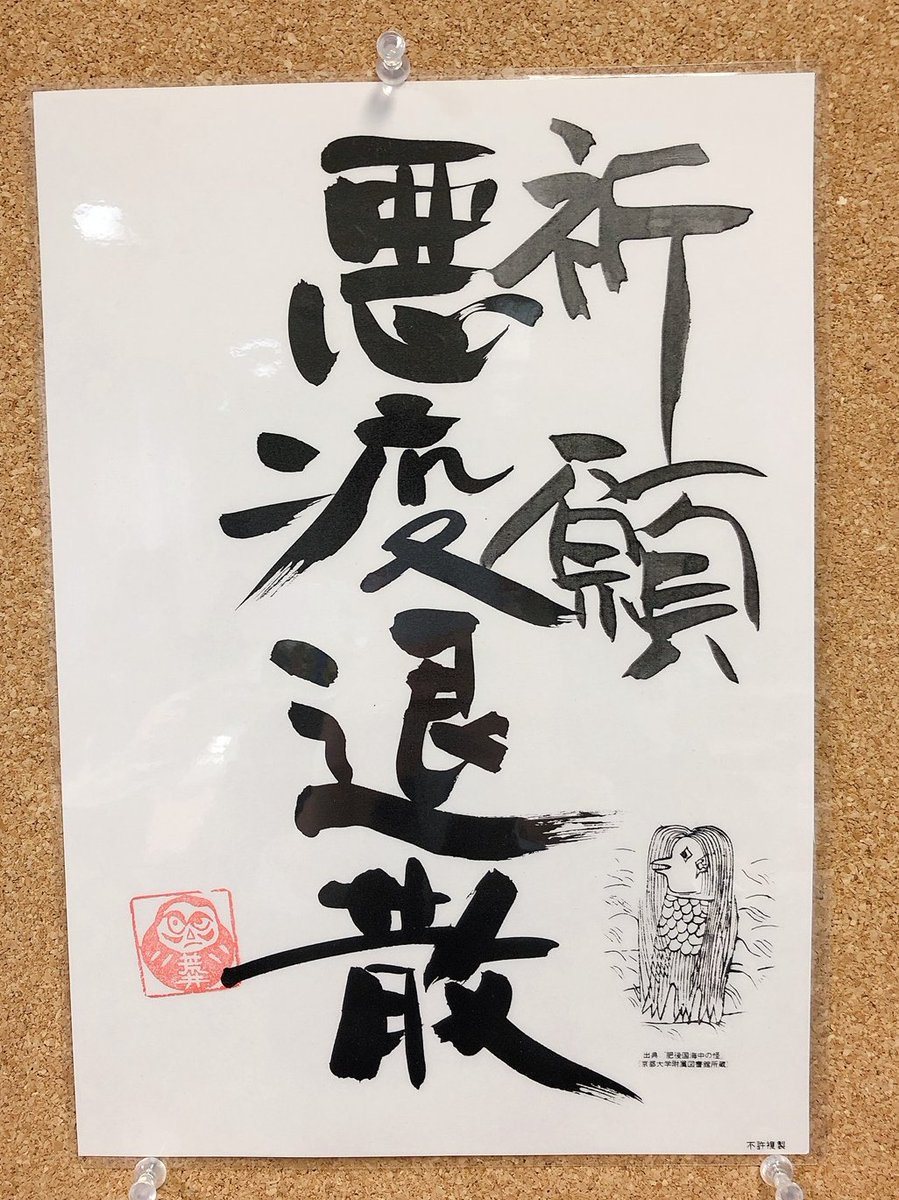 祈願
悪疫退散
出典「肥後国海中の怪」
(京都大学附属図書館所蔵)
不許複製